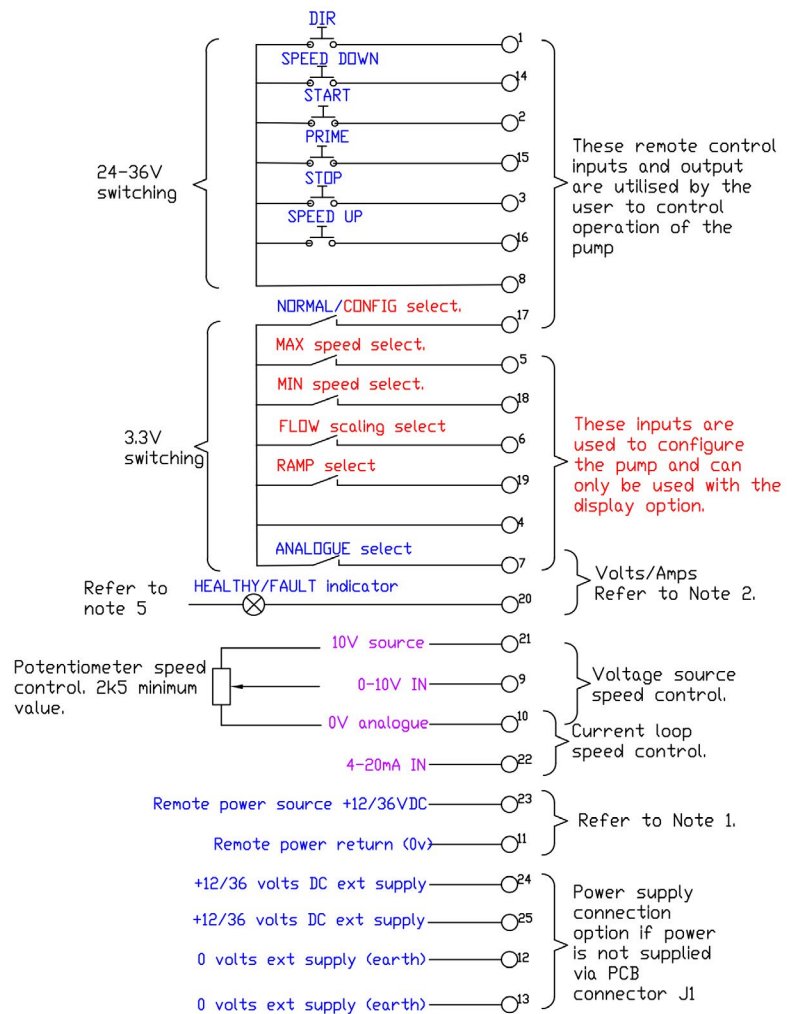 DIR
1
SPEED DOWN
14
START
2
PRIME
15
STOP
3
SPEED UP
16
8
24-36V
switching
These remote control
inputs and output
are utilised by the
user to control
operation of the
pump
NORMAL/CONFIG select.
17
MAX speed select.
5
MIN speed select.
18
FLOW scaling select
6
RAMP select
19
4
ANALOGUE select
7
3.3V
switching
These inputs are
used to configure
the pump and can
only be used with the
display option.
Refer to
note 5
HEALTHY/FAULT indicator
20
Volts/Amps
Refer to Note 2.
10V source
21
0-10V IN
9
0V analogue
10
4-20mA IN
22
Potentiometer speed
control. 2k5 minimum
value.
Voltage source
speed control.
Current loop
speed control.
Remote power source +12/36VDC
23
Remote power return (0v)
11
Refer to Note 1.
+12/36 volts DC ext supply
24
+12/36 volts DC ext supply
25
0 volts ext supply (earth)
12
0 volts ext supply (earth)
13
Power supply
connection
option if power
is not supplied
via PCB
connector J1